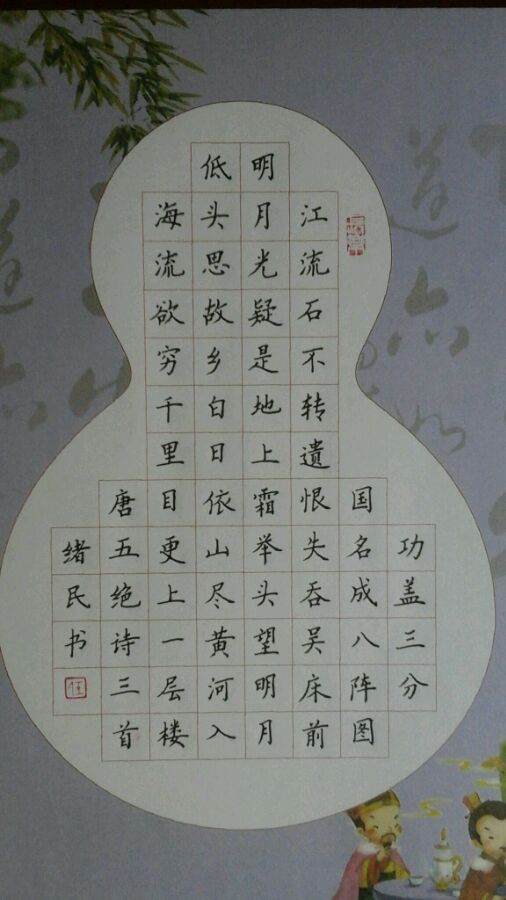 功盖三分
国名成八阵图
江流石不转遗恨失吞吴床前
明月光疑是地上霜举头望明月
低头思故乡白日依山尽黄河入
海流欲穷千里目更上一层楼
唐五绝诗三首
绪民书